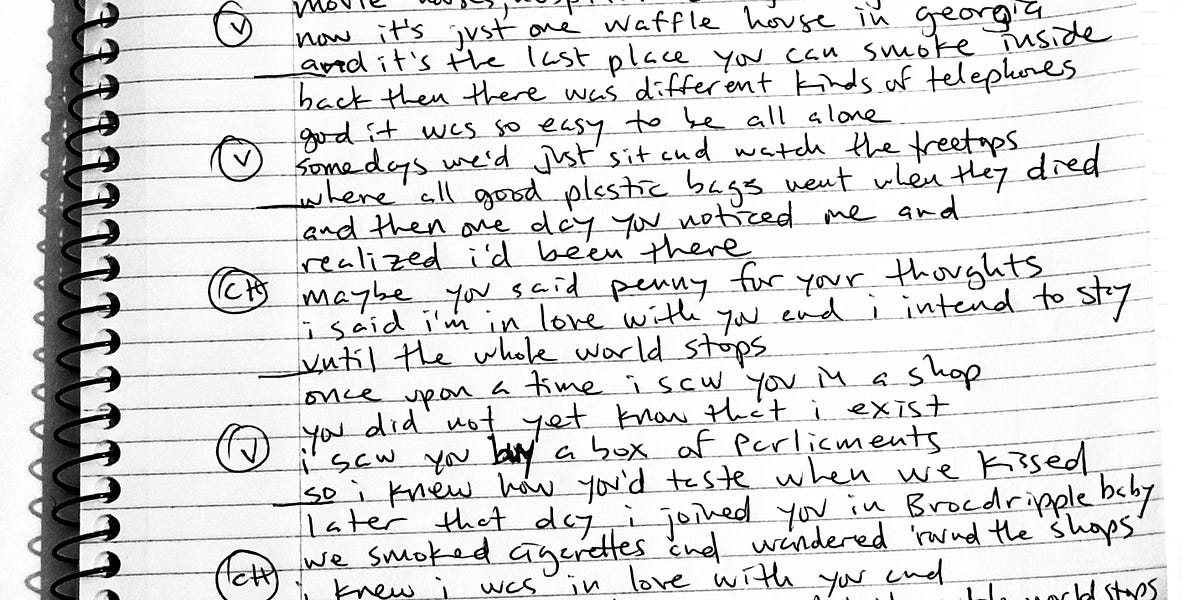 movie houses,
Ⓥ now it's just one waffle house in georgia
and it's the last place you can smoke inside
back then there was different kinds of telephones
god it was so easy to be all alone
Ⓥ some days we'd just sit and watch the treetops
where all good plastic bags went when they died
and then one day you noticed me and
realized i'd been there
CH maybe you said penny for your thoughts
i said i'm in love with you and i intend to stay
until the whole world stops
once upon a time i saw you in a shop
you did not yet know that i exist
Ⓥ i saw you buy a box of parliaments
so i knew how you'd taste when we kissed
later that day i joined you in Broadripple baby
we smoked cigarettes and wandered 'round the shops
CH i knew i was in love with you and
whole world stops